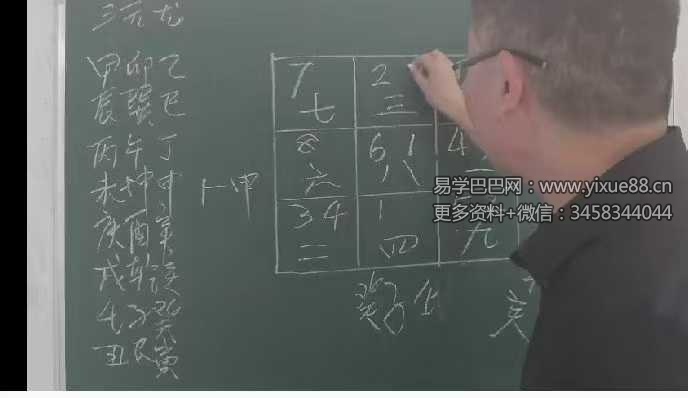 三元龙
甲卯乙
辰巽巳
丙午丁
未坤申
庚酉辛
戌乾亥
壬子癸
丑艮寅
7 2
七 三
8 6 1 4
六 八 一
卜甲
3 4 1
二 四 九
易学巴巴网:www.yixue88.cn
更多资料+微信:3458344044
亥